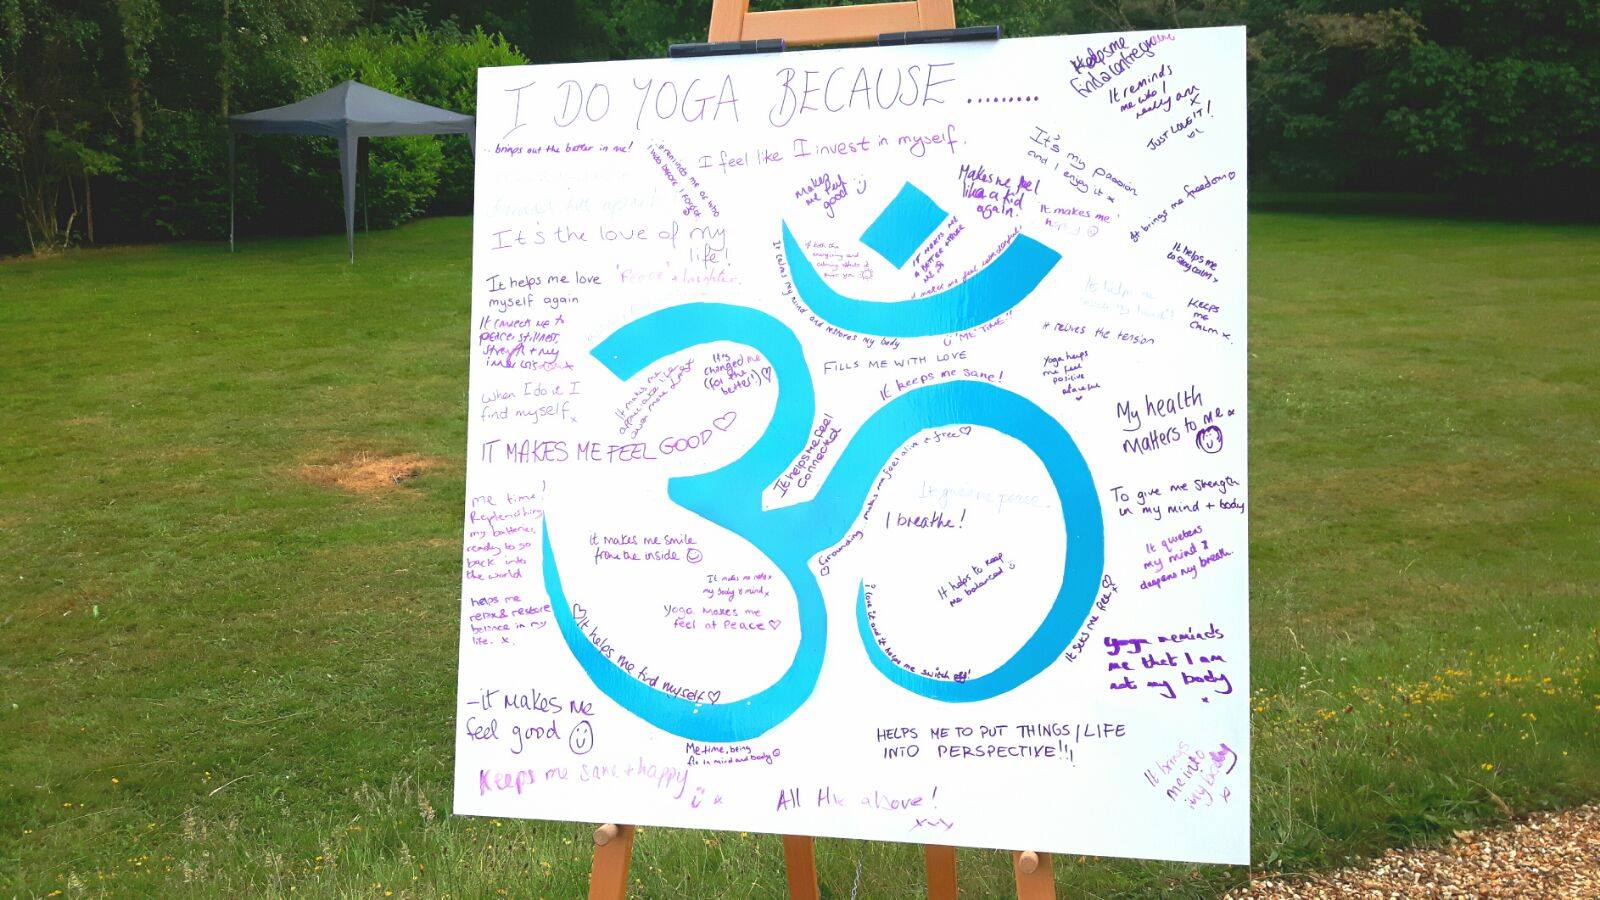 I DO YOGA BECAUSE .........
.. brings out the better in me!
it reminds me of who
I was before I forgot
I feel like I invest in myself.
Makes
me feel
good
Makes me feel
like a kid
again.
It's my passion
and I enjoy it x
Helps me
It reminds
me who I
really am
x
JUST LOVE IT!
It brings me freedom
It helps me
to stay calm
KEEPS
ME
CALM x.
It's the love of my
life!
It helps me love
myself again
'Peace' + laughter.
It connects me to
peace, stillness,
strength + my
When I do it I
find myself x
IT MAKES ME FEEL GOOD
It makes me
appreciate life
even more
It's
changed me
(for the
better!)
It calms my mind and restores my body
IT MAKES ME
A BETTER
ME
'It makes me
happy
It makes me feel wonderful!
'ME' TIME!!
It helps me
It relieves the tension
FILLS ME WITH LOVE
It keeps me sane!
Yoga helps
me feel
positive
My health
matters to me x
It helps me feel
connected
Grounding... makes me feel alive + free
It gives me peace
I breathe!
It helps to keep
me balanced
I love it and it helps me switch off!
It sets me free x
To give me strength
in my mind + body
It quietens
my mind &
deepens my breath.
Yoga reminds
me that I am
not my body
x
me time!
Replenishing
my batteries,
ready to go
back into
the world
helps me
relax & restore
balance in my
life. x.
It makes me smile
from the inside
It makes me relax
my body & mind x
Yoga makes me
feel at Peace
It helps me find myself
-it makes me
feel good
Me time, being
in mind and body
Keeps me sane + happy
x
All the above!
HELPS ME TO PUT THINGS / LIFE
INTO PERSPECTIVE!!!
It brings
me into
my body
x